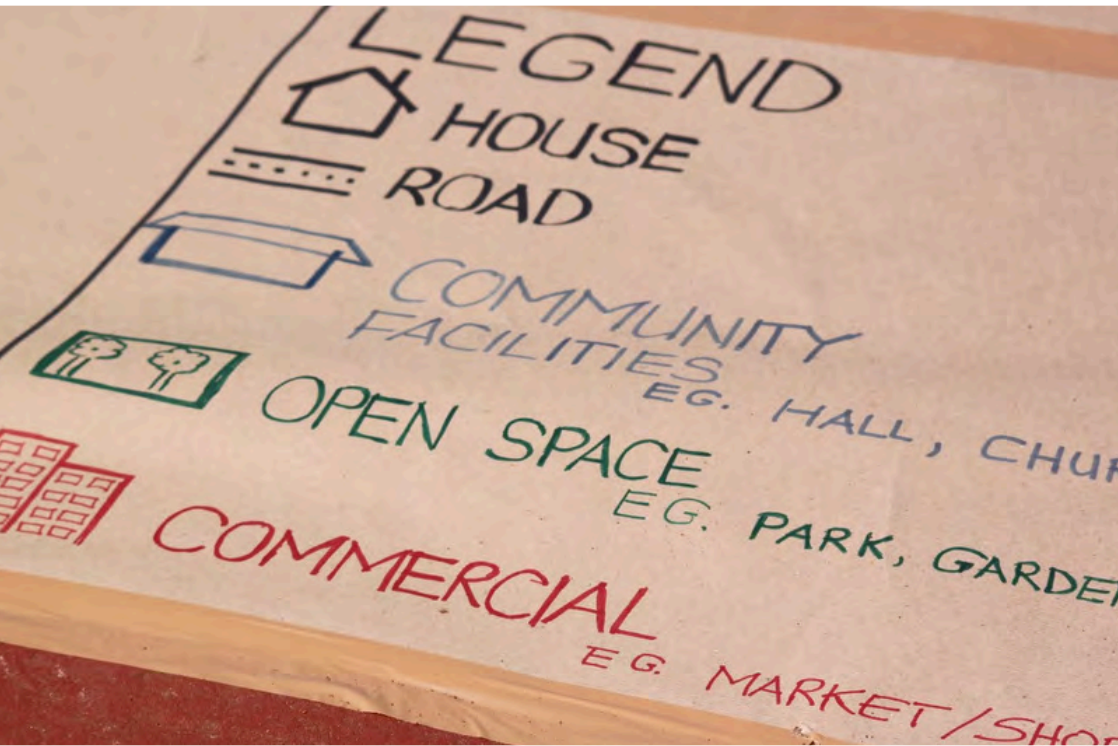 LEGEND
HOUSE
ROAD
COMMUNITY
FACILITIES
EG. HALL,
OPEN SPACE
EG. PARK,
COMMERCIAL
EG. MARKET/